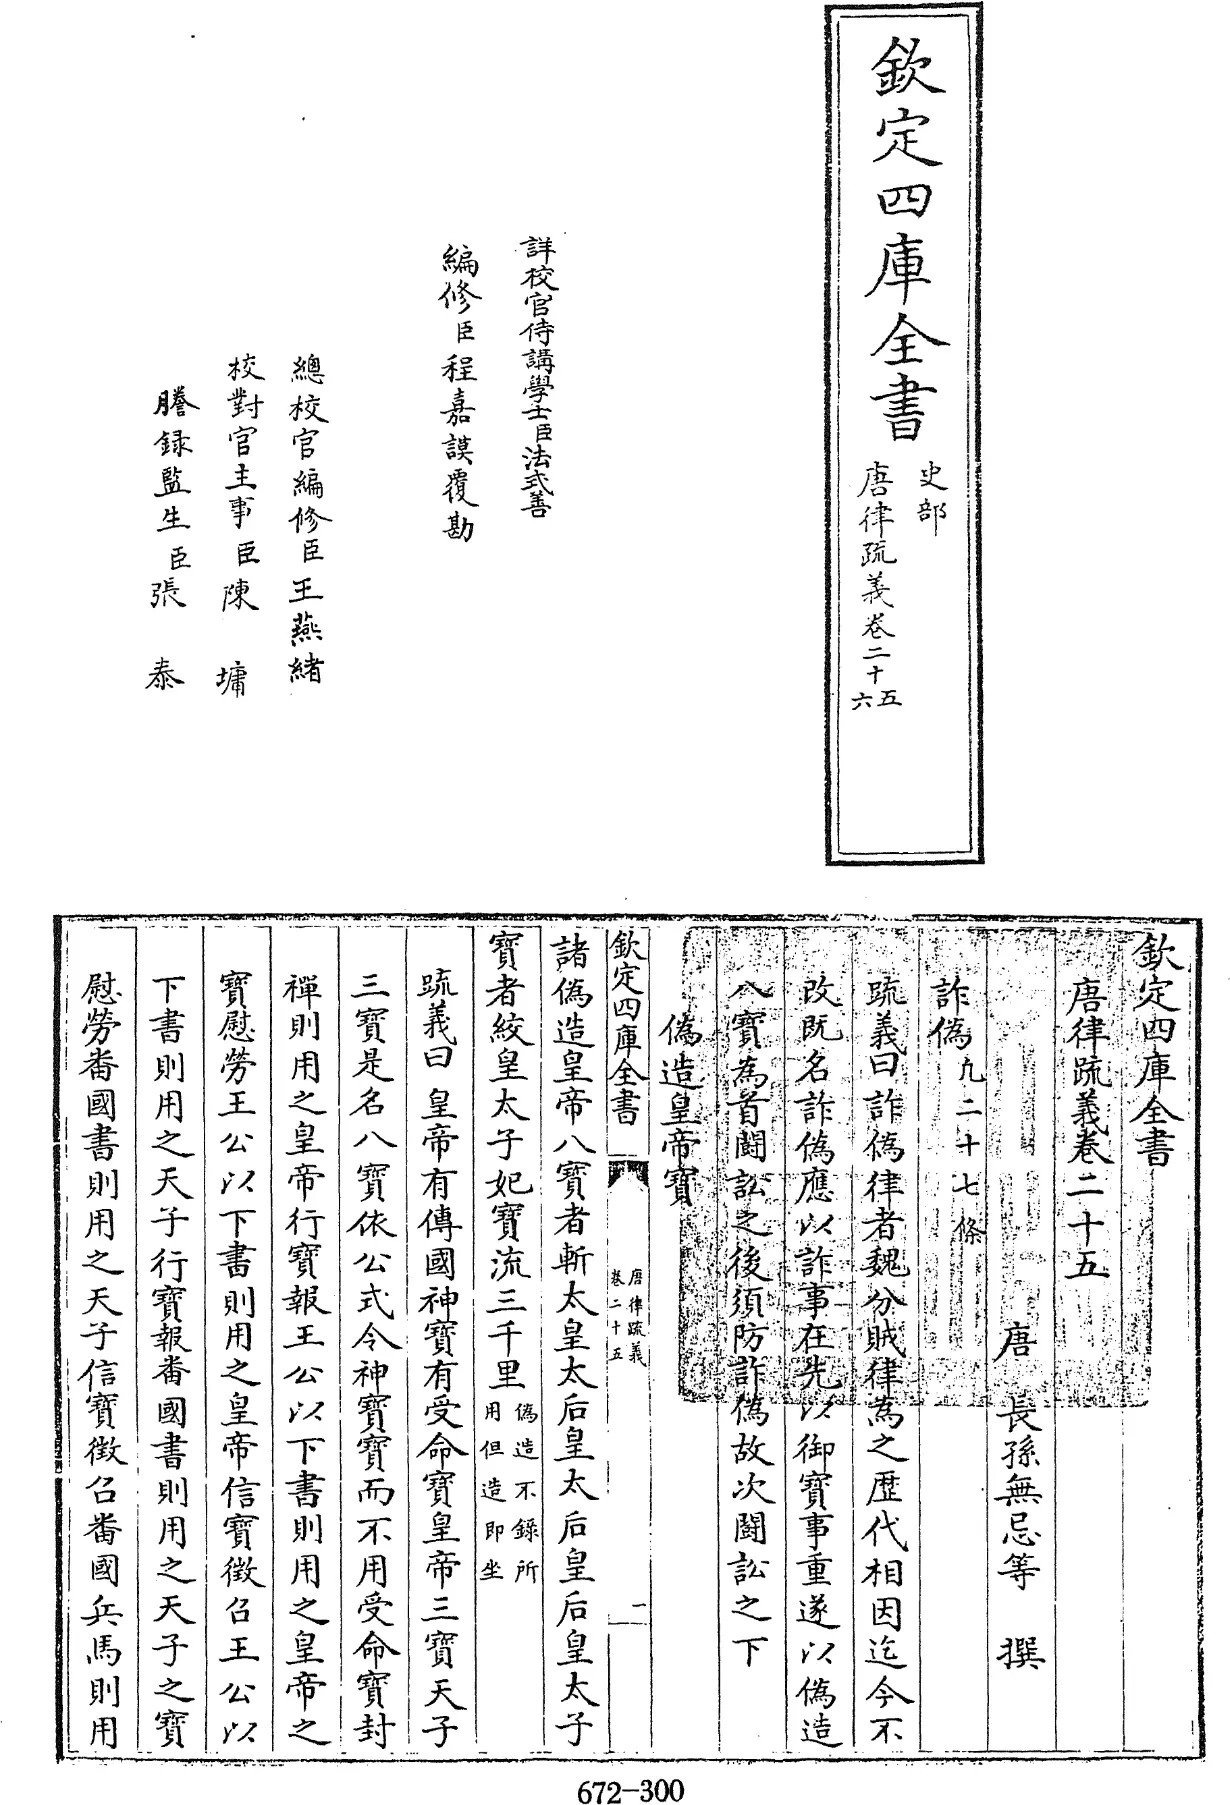 欽定四庫全書
史部
唐律疏義卷二十五
六
詳校官侍講學士臣法式善
編修臣程嘉謨覆勘
總校官編修臣王燕緒
校對官主事臣陳墉
謄録監生臣張泰
欽定四庫全書
唐律疏義卷二十五
唐 長孫無忌等 撰
詐偽凡二十七條
疏義曰詐偽律者魏分賊律為之歷代相因迄今不
改既名詐偽應以詐事在先以御寶事重遂以偽造
八寶為首鬭訟之後須防詐偽故次鬭訟之下
偽造皇帝寶
欽定四庫全書
唐律疏義
卷二十五
一
諸偽造皇帝八寶者斬太皇太后皇太后皇后皇太子
寶者絞皇太子妃寶流三千里偽造不錄所
用但造即坐
疏義曰皇帝有傳國神寶有受命寶皇帝三寶天子
三寶是名八寶依公式令神寶寶而不用受命寶封
禪則用之皇帝行寶報王公以下書則用之皇帝之
寶慰勞王公以下書則用之皇帝信寶徵召王公以
下書則用之天子行寶報番國書則用之天子之寶
慰勞番國書則用之天子信寶徵召番國兵馬則用
672-300